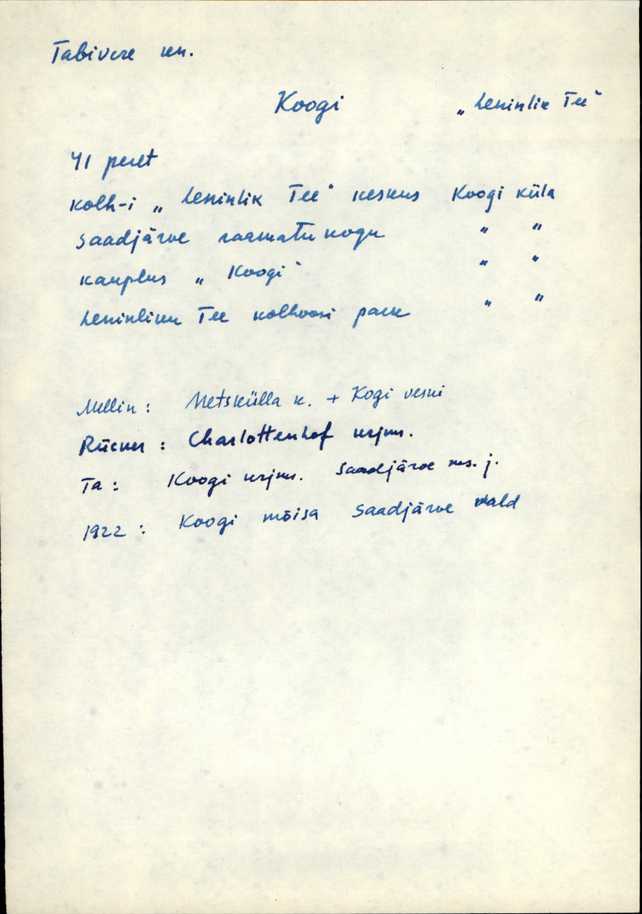 Tabivere kn.
Koogi „Leninlik Tee"
41 peret
Kolh-i „Leninlik Tee" keskus Koogi küla
Saadjärve raamatukogu " "
kauplus „Koogi" " "
Leninliku Tee kolhoosi park " "
Mellin: Metskülla k. + Kogi veski
Rücker: Charlottenhof krjm.
Ta: Koogi krjm. Saadjärve ms. j.
1922: Koogi mõisa Saadjärve vald